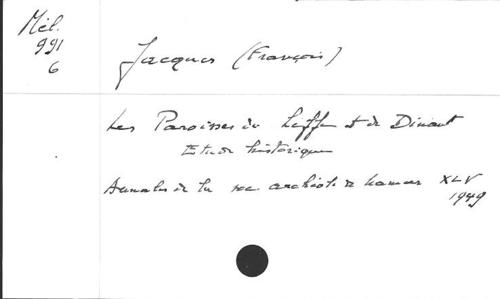 Mél.
991
6
Jacques (François)
Les Paroisses de Leffe et de Dinant
Etude historique
Annales de la soc archéol. de Namur XLV
1949